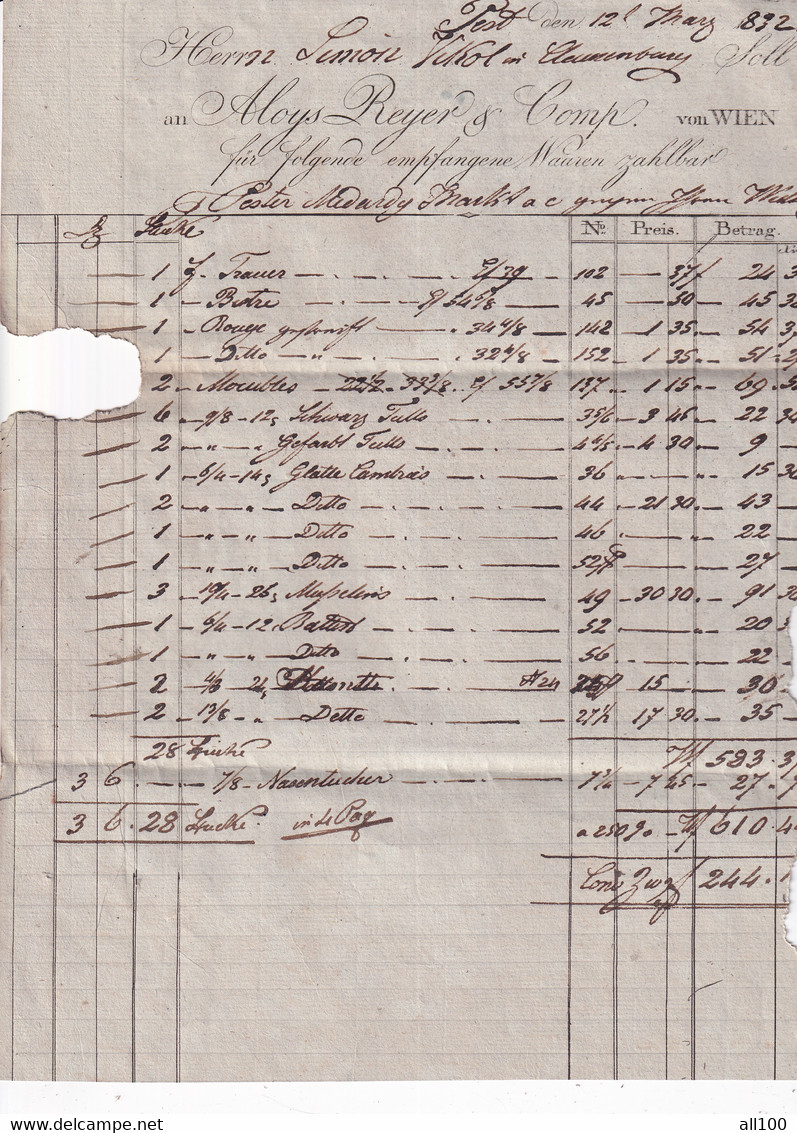 Pest den 12t Marz 832
Herrn Simon Vikol in Clausenburg Soll
an Aloys Reyer & Comp. von WIEN
für folgende empfangene Waaren zahlbar
Pester Medardy Markt a c
Stucke No. Preis. Betrag.
1 Trauer 39 102 37 24
1 Botre 54 6/8 45 50 45
1 Rouge 34 4/8 142 1 35 54
1 Ditto 32 4/8 152 1 35 51
2 Moeubles 22 1/2 33 3/8 55 7/8 137 1 15 69
6 9/8 12 Schwarz Tulls 3 45 22
2 " " Gefarbt Tulls 4 30 9 -
1 6/4 14 Glatte Cambrás 36 " 15
2 " " Ditto 44 21 30 43 -
1 " " Ditto 46 22 -
1 " " Ditto 52 27 -
3 10/4 26 Musselins 49 30 30 91
1 6/4 12 Batist 52 20
1 " " Ditto 56 22 -
2 N 24 15 30
2 13/8 " Detto 27 1/2 17 30 35 -
28 Stucke W 583
3 6 7/8 Nasentucher 7 45 27
3 6 28 Stucke in 4 Paq a 250 % W 610
Conv Zwg 244
all100